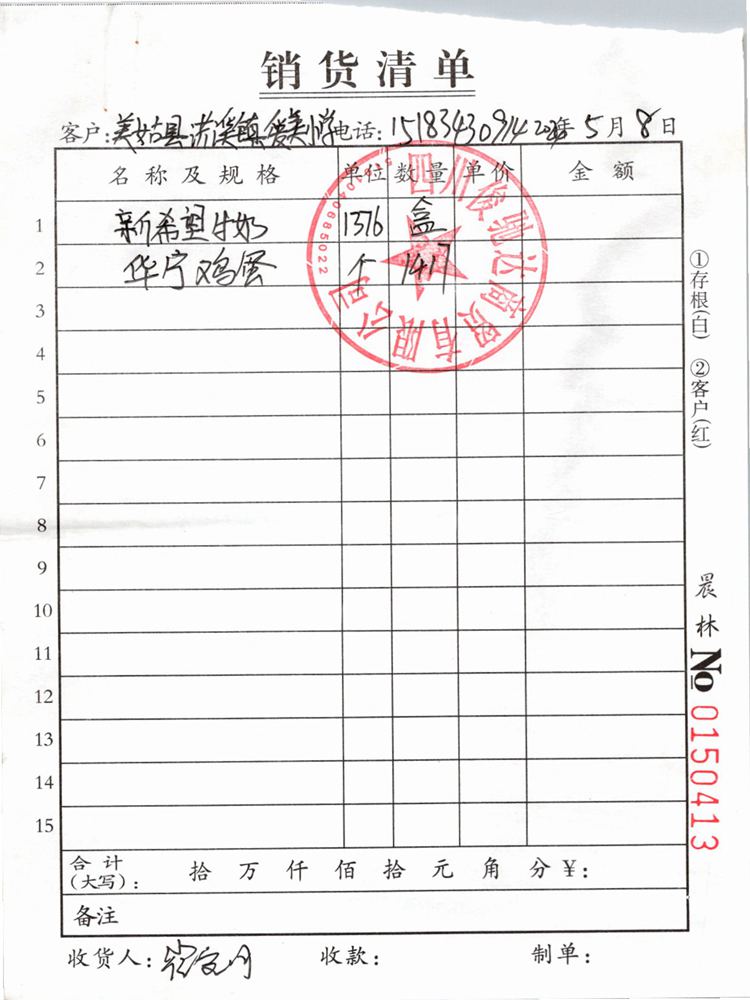 销货清单
客户:美姑县洪溪镇爱美小学 电话:15183430914 年5月8日
名称及规格 单位 数量 单价 金额
1 新希望牛奶 1376 盒
2 华宁鸡蛋 个 1417
3
4
5
6
7
8
9
10
11
12
13
14
15
合计(大写): 拾 万 仟 佰 拾 元 角 分 ¥:
备注
收货人: 收款: 制单:
①存根(白) ②客户(红)
晨林 No 0150413
四川俊驰达商贸有限公司
5101040685022